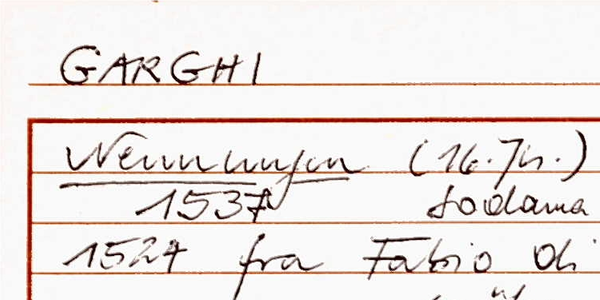 GARGHI
Nennungen (16. Jh.)
1537 Sodoma
1527 fra Fabio di